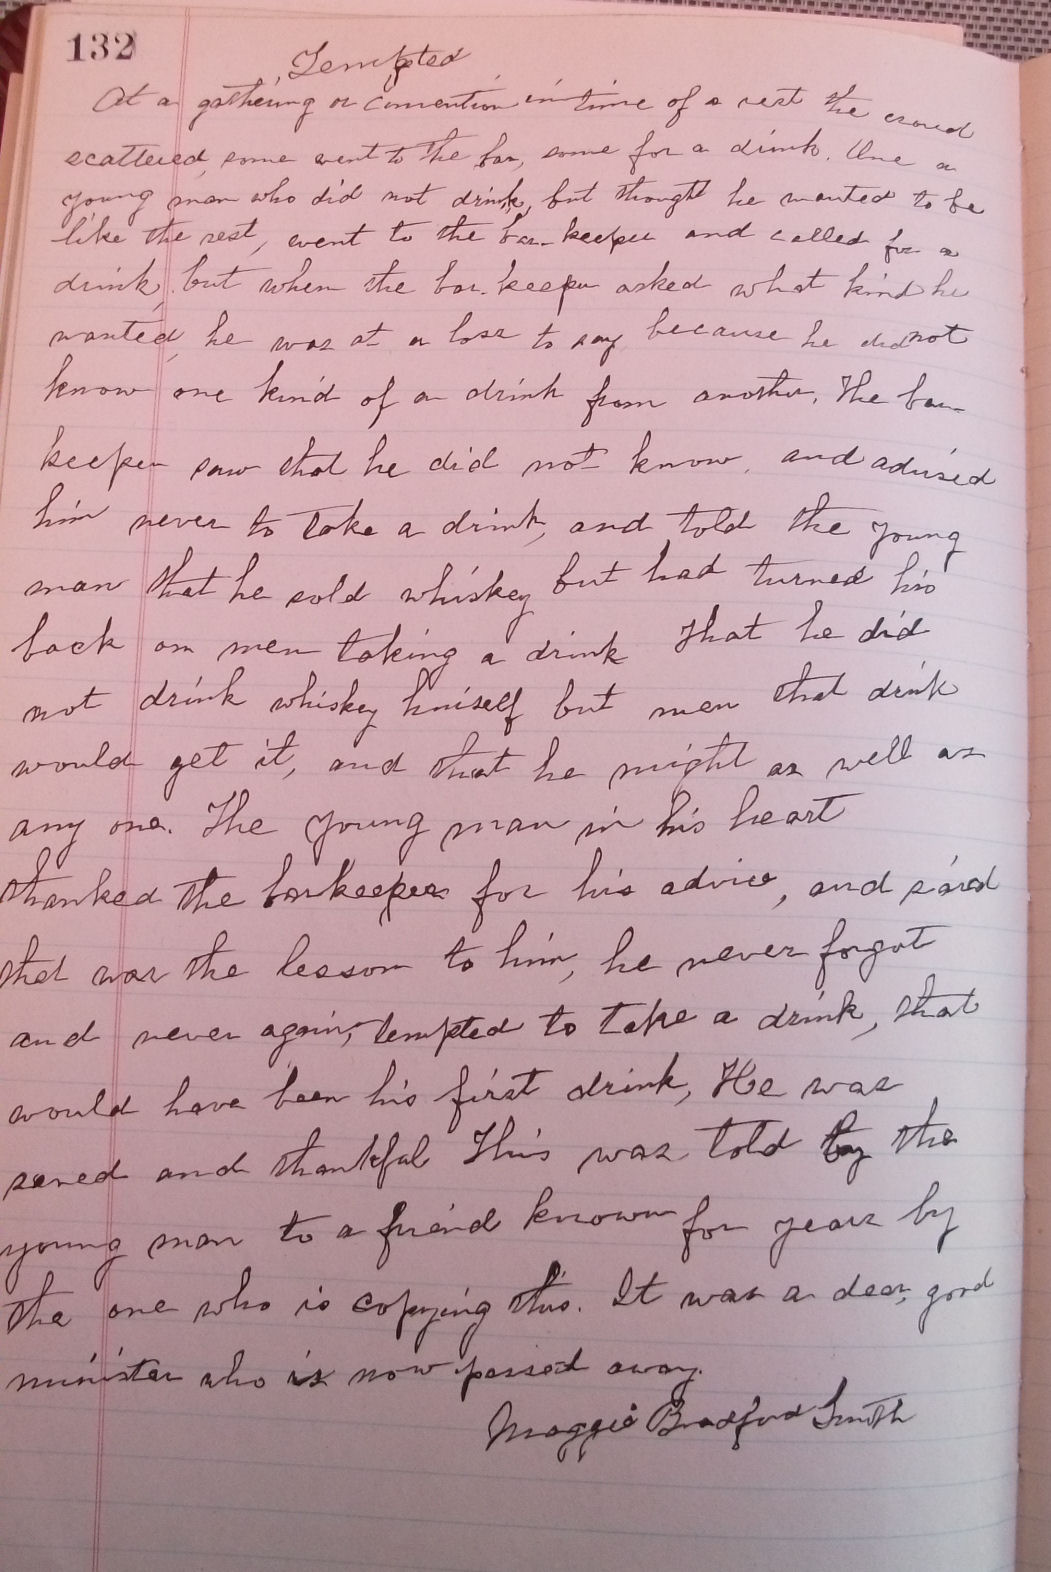 132
Tempted
At a gathering or convention in time of a rest the crowd
scattered, some went to the bar, some for a drink. One a
young man who did not drink, but thought he wanted to be
like the rest, went to the bar-keeper and called for a
drink, but when the bar-keeper asked what kind he
wanted, he was at a loss to say because he did not
know one kind of a drink from another. The bar-
keeper saw that he did not know, and advised
him never to take a drink, and told the young
man that he sold whiskey but had turned his
back on men taking a drink That he did
not drink whiskey himself but men that drink
would get it, and that he might as well as
any one. The young man in his heart
thanked the barkeeper for his advice, and said
that was the lesson to him, he never forgot
and never again, tempted to take a drink, that
would have been his first drink, He was
saved and thankful This was told by the
young man to a friend known for years by
the one who is copying this. It was a dear, good
minister who is now passed away.
Maggie Bradford Smith